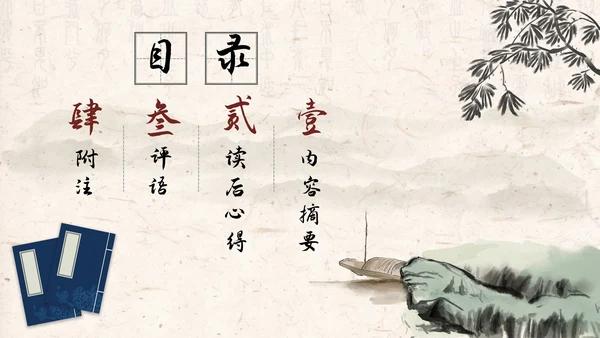 目录
壹
内容摘要
贰
读后心得
叁
评语
肆
附注